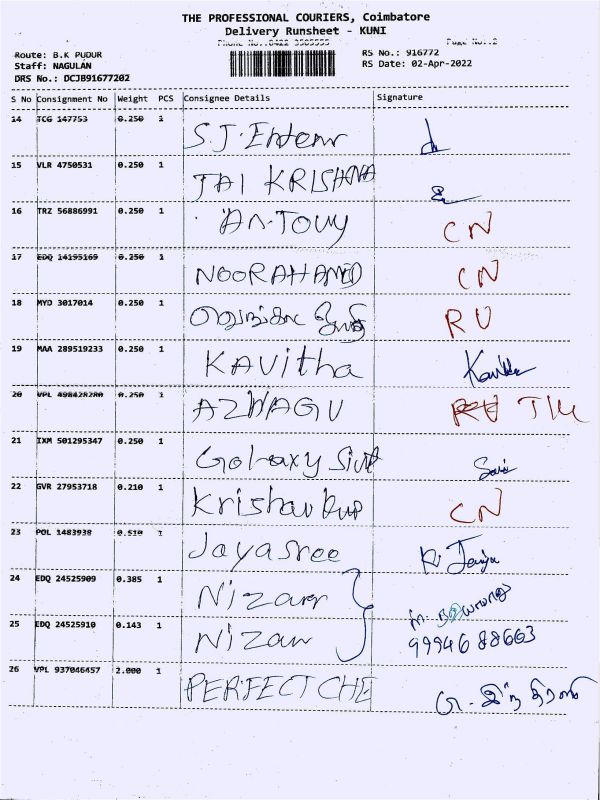 THE PROFESSIONAL COURIERS, Coimbatore
Delivery Runsheet - KUNI
Phone No.:0422 3585555 Page No.:2
Route: B.K PUDUR RS No.: 916772
Staff: NAGULAN RS Date: 02-Apr-2022
DRS No.: DCJB91677202
S No Consignment No Weight PCS Consignee Details Signature
14 TCG 147753 0.250 1 S.J.
15 VLR 4750531 0.250 1 JAI KRISHNA
16 TRZ 56886991 0.250 1 AN.TOUY CN
17 EDQ 14195169 0.250 1 NOORAHAMED CN
18 MYD 3017014 0.250 1 RU
19 MAA 289519233 0.250 1 KAVitha
20 VPL 498428280 0.250 1 AZHAGU
21 IXM 501295347 0.250 1 Golaxy
22 GVR 27953718 0.210 1 Krishna CN
23 POL 1483938 0.510 1 Jayasree
24 EDQ 24525909 0.385 1 Nizam
25 EDQ 24525910 0.143 1 Nizam 9994688663
26 VPL 937046457 2.000 1 PERFECT CHE